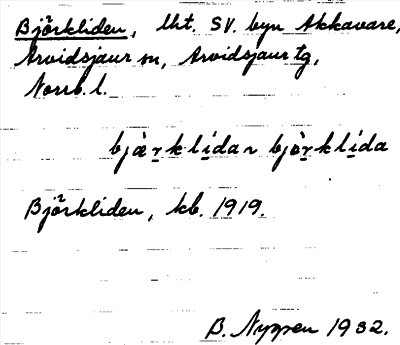 Björkliden, lht. SV. byn Akkavare,
Arvidsjaur sn, Arvidsjaur tg,
Norrb. l.
bjæ̀r̠kli̠dan bjö̀r̠kli̠da
Björkliden, kb. 1919.
B. Nyppen 1932.